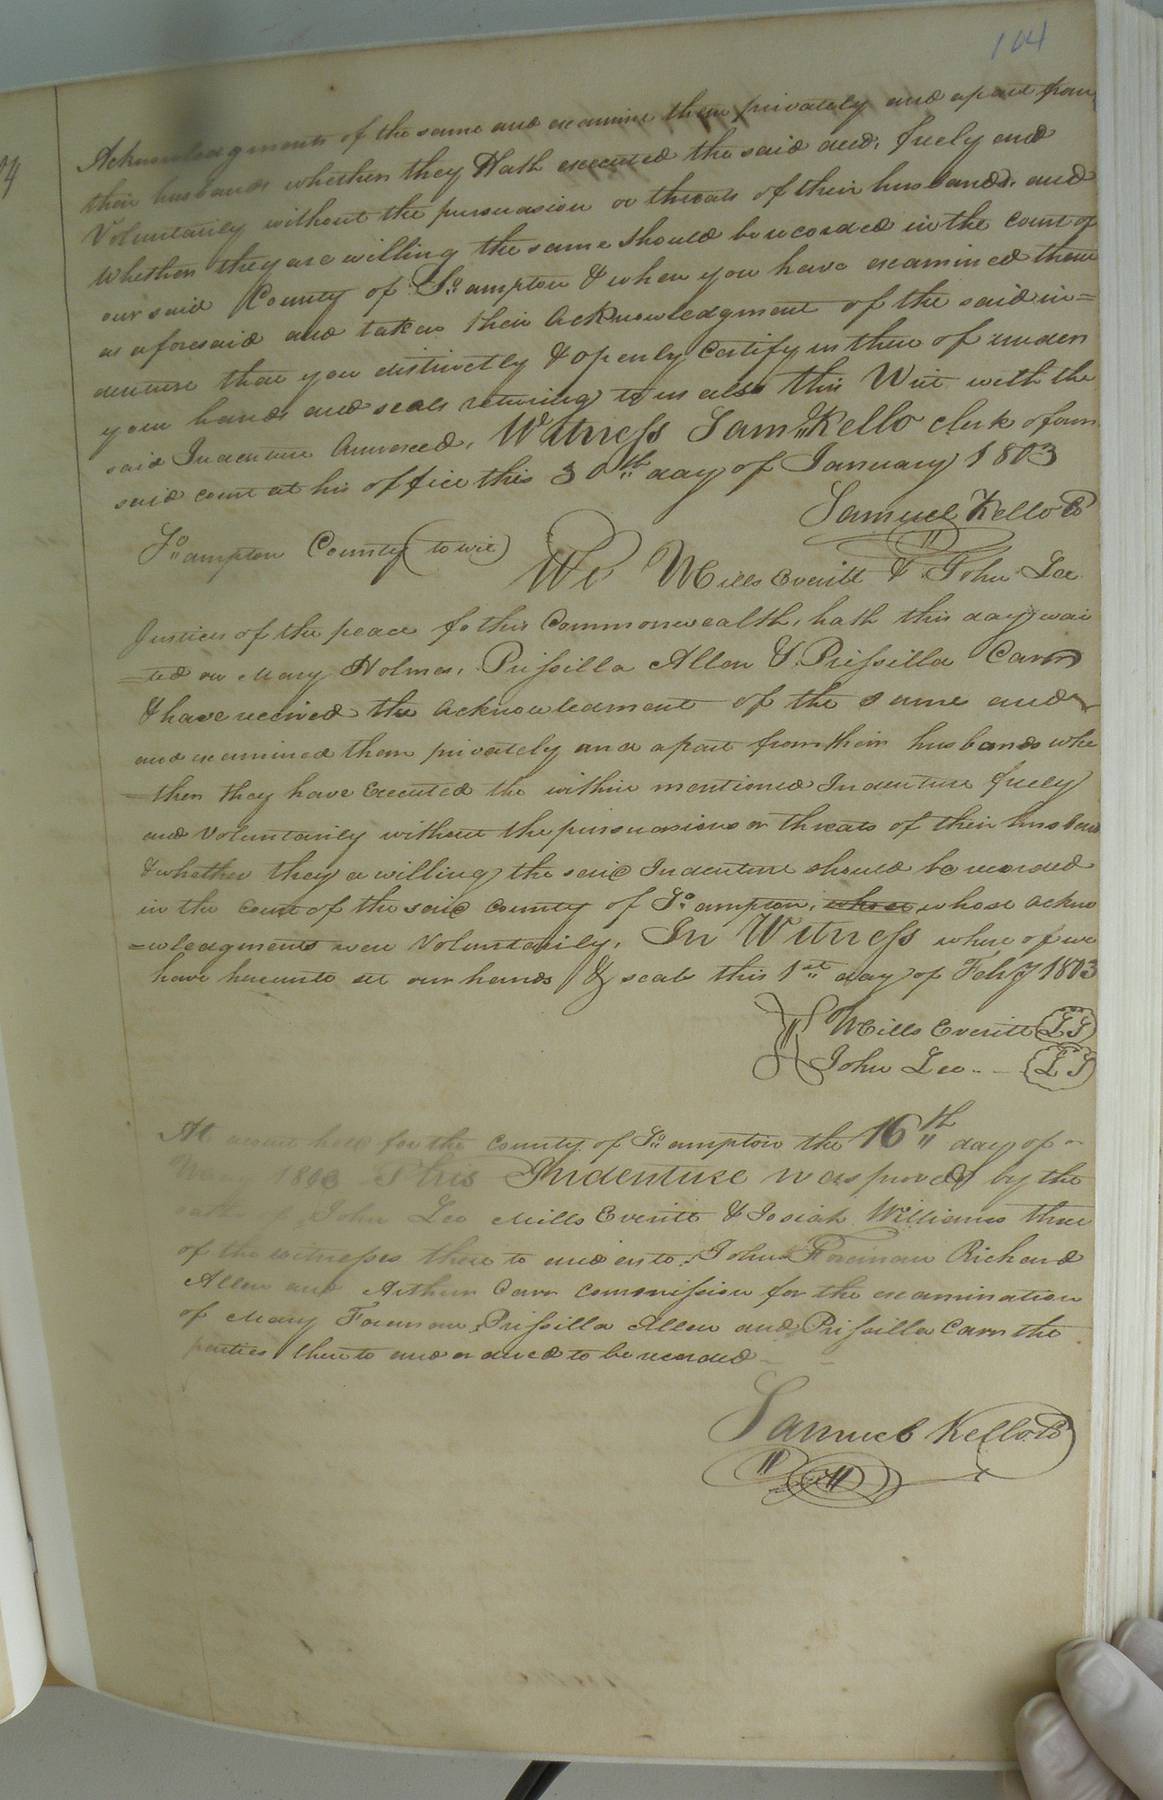 104
Acknowledgments of the same and examine them privately and apart from
their husbands whether they Hath executed the said deed, freely and
Voluntarily without the pursuasion or threats of their husbands, and
Whether they are willing the same should be recorded in the court of
our said County of So.ampton & when you have examined them
as aforesaid and taken their Acknowledgment of the said in=
denture that you distinctly & openly Certify us there of under
your hands and seals returning to us also this Writ with the
said Indenture Annexed, Witness Saml Kello clerk of our
said court at his office this 30th day of January 1803
Samuel Kello C
So.ampton County (to wit)
We Mills Everitt & John Lee
Justices of the peace fo this Commonwealth, hath this day wai
=ted on Mary Holmes, Prissilla Allen & Prissilla Carr
& have received the Acknowledgment of the same and
and examined them privately and apart from their husbands whe
=ther they have Executed the within mentioned Indenture freely
and voluntarily without the pursuasions or threats of their husband
& whether they a willing the said Indenture should be recorded
in the court of the said county of So.ampton, whose whose Ackno
=wledgments were Voluntarily. In Witness where of we
have hereunto set our hands & seals this 1st day of Feby 1803
Mills Everitt LS
John Lee LS
At a court held for the county of So.ampton the 16th day of
May 1803 This Indenture was proved by the
oath of John Lee Mills Everitt & Josiah Williams three
of the witnesses there to and as to John Foreman Richard
Allen and Arthur Carr commission for the examination
of Mary Foreman, Prissilla Allen and Prissilla Carr the
parties thereto and ordered to be recorded
Samuel Kello C